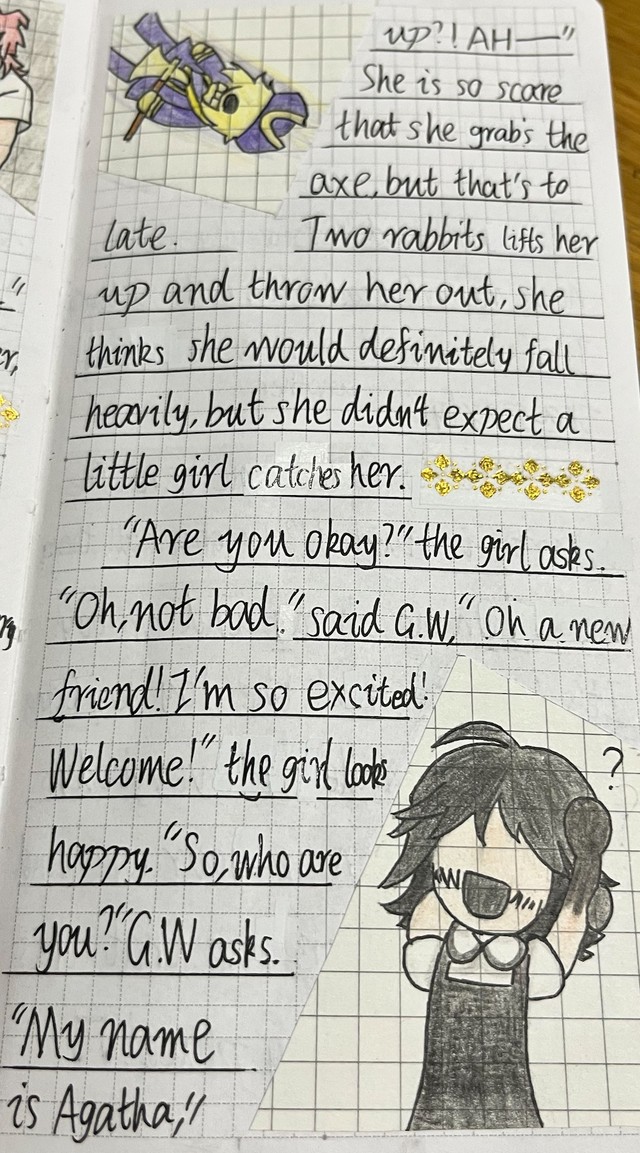 up?! AH—"
She is so scare
that she grabs the
axe, but that's to
late. Two rabbits lifts her
up and throw her out, she
thinks she would definitely fall
heavily, but she didn't expect a
little girl catches her.
"Are you okay?" the girl asks.
"Oh, not bad." said G.W, "Oh a new
friend! I'm so excited!
Welcome!" the girl looks
?
happy. "So, who are
you?" G.W asks.
"My name
is Agatha,"